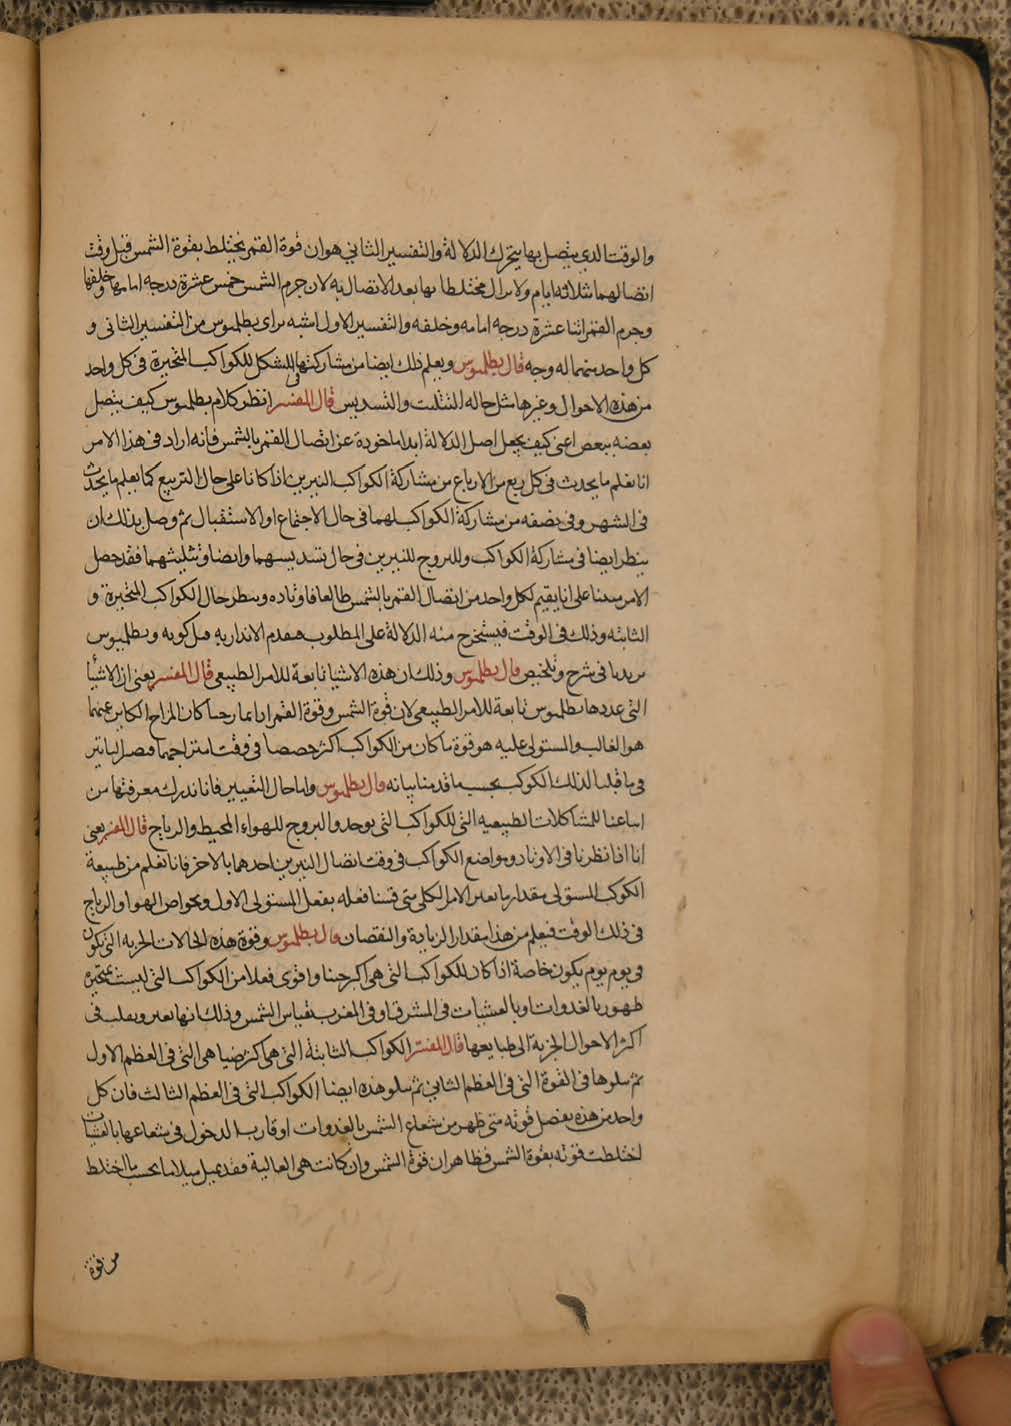 والوقت الذي يتصل بها يتحرك الدلالة والتفسير الثاني هو ان قوة القمر يختلط بقوة الشمس قبل وقت
اتصالهما بثلاثة ايام ولا يزال مختلطا بها بعد الاتصال به لان جرم الشمس خمس عشرة درجه امامها وخلفها
وجرم القمر اثنا عشرة درجه امامه وخلفه والتفسير الاول اشبه براى بطلميوس من التفسير الثانى و
كل واحد منهما له وجه قال بطلميوس ويعلم ذلك ايضا من مشاركتها فى الشكل للكواكب المتحيرة فى كل واحد
من هذه الاحوال وغيرها مثل حاله التثليث والتسديس قال المفسر انظر كلام بطلميوس كيف يتصل
بعضه ببعض اعنى كيف يجعل اصل الدلالة ابدا ماخودة عن اتصال القمر بالشمس فانه اراد فى هذا الامر
انا نعلم ما يحدث فى كل ربع من الارباع من مشاركة الكواكب النيرين اذا كانا على حال التربيع كما يعلم ما يحدث
فى الشهر وفى نصفه من مشاركة الكواكب لهما فى حال الاجتماع او الاستقبال ثم وصل بذلك ان
ينظر ايضا فى مشاركة الكواكب وللبروج للنيرين فى حال تسديسهما وايضا وتثليثهما فقد حصل
الامر على انا نقيم لكل واحد من اتصال القمر بالشمس طالعا واوتاده وينظر حال الكواكب المتحيرة و
الثابته وذلك فى الوقت فيستخرج منه الدلالة على المطلوب الانذار به قبل كونه وبطلميوس
يزيدنا فى شرح وتلخيص قال بطلميوس وذلك ان هذه الاشيا تابعة للامر الطبيعى قال المفسر يعنى ان الاشيا
التى عددها بطلميوس تابعة للامر الطبيعى لان قوة الشمس وقوة القمر كان المزاج الكاين عنهما
هو الغالب والمستولى عليه هو قوة ما كان من الكواكب اكثر حصصا فى وقت امتزاجهما
فى ما قبلنا لذلك الكوكب بحسب ما قدمنا بيانه قال بطلميوس واما حال التغيير فانا ندرك معرفتها من
للمشاكلات الطبيعيه التى للكواكب التى يوجد والبروج للهواء المحيط والرياح قال المفسر يعنى
انا اذا نظرنا فى الاوتاد ومواضع الكواكب فى وقت اتصال النيرين احدهما بالاخر فانا نعلم من طبيعة
الكوكب المستولى مقدار ما يغير الامر الكلى متى قسنا فعله بفعل المستولى الاول وبخواص الهوا والرياح
فى ذلك الوقت فيعلم من هذا مقدار الزيادة والنقصان قال بطلميوس وقوة هذه الحالات الجزيه التى يكون
فى يوم يوم يكون خاصة اذا كان للكواكب التى هى اكثر واقوى فعلا من الكواكب التى ليست بمتحيرة
ظهور بالغدوات او بالعشيات فى المشرق او فى المغرب بقياس الشمس وذلك انها تغير ويقلب فى
اكثر الاحوال الجزية الى طبايعها قال المفسر الكواكب الثابتة التى هى اكثر ضيا هى التى فى العظم الاول
ثم يتلوها فى القوة التى فى العظم الثاني ثم يتلو هذه ايضا الكواكب التى فى العظم الثالث فان كل
واحد من هذه يفصل قوته متى ظهر من شعاع الشمس بالغدوات او قارب الدخول فى شعاعها بالعشيات
اختلطت قوته بقوة الشمس فظاهر ان قوة الشمس وان كانت هى الغالبة فقد يميل ميلا ما بحسب ما اختلط
من قوة